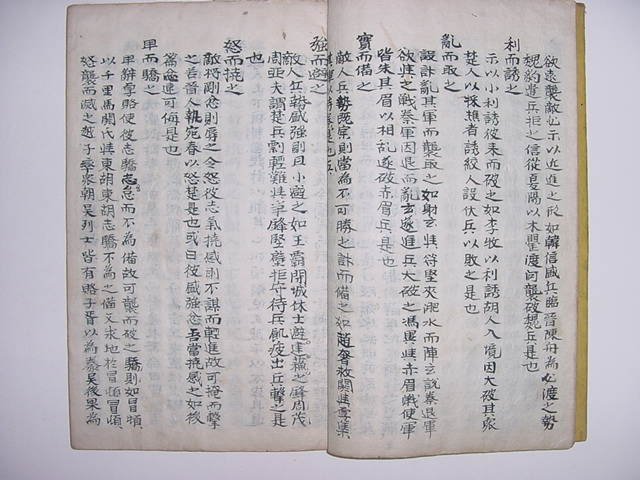 欲遠襲敵必示以近進之形如韓信盛兵臨晉陳舟為必渡之勢
魏豹遣兵拒之信從夏陽以木罌渡河襲破魏兵是也
利而誘之
示以小利誘彼來而破之如李牧以利誘胡人入境因大破其衆
楚人以採樵者誘絞人設伏兵以敗之是也
亂而取之
設計亂其軍而襲取之如謝玄與符堅夾淝水而陣玄說秦退軍
欲與之戰秦軍因退而亂玄遂進兵大破之馮異與赤眉戰使軍
皆朱其眉以相乱遂破赤眉兵是也
實而備之
敵人兵勢既宗則當為不可勝之計而備之如趙奢救閼與
強而避之
敵人兵勢盛強則且小避之如王霸閉城休士避蘇茂之鋒周
周亞夫謂楚兵剽輕難與爭鋒堅壁拒守待兵飢疲出兵擊之是
也
怒而撓之
敵將剛忿則辱之令怒彼志氣撓惑則不謀而輕進故可掩而擊
之晉人執宛春以怒楚是也或曰彼盛強忿吾當撓惑之如後
可侮是也
卑而驕之
卑辭厚賂使彼志驕志怠而不為備故可襲而破之驕則如冒頓
以千里馬閼氏與東胡東胡志驕不為之備又求地於冒頓冒頓
怒襲而滅之越子率衆朝吳列士皆有賂子胥以為豢吳後果為